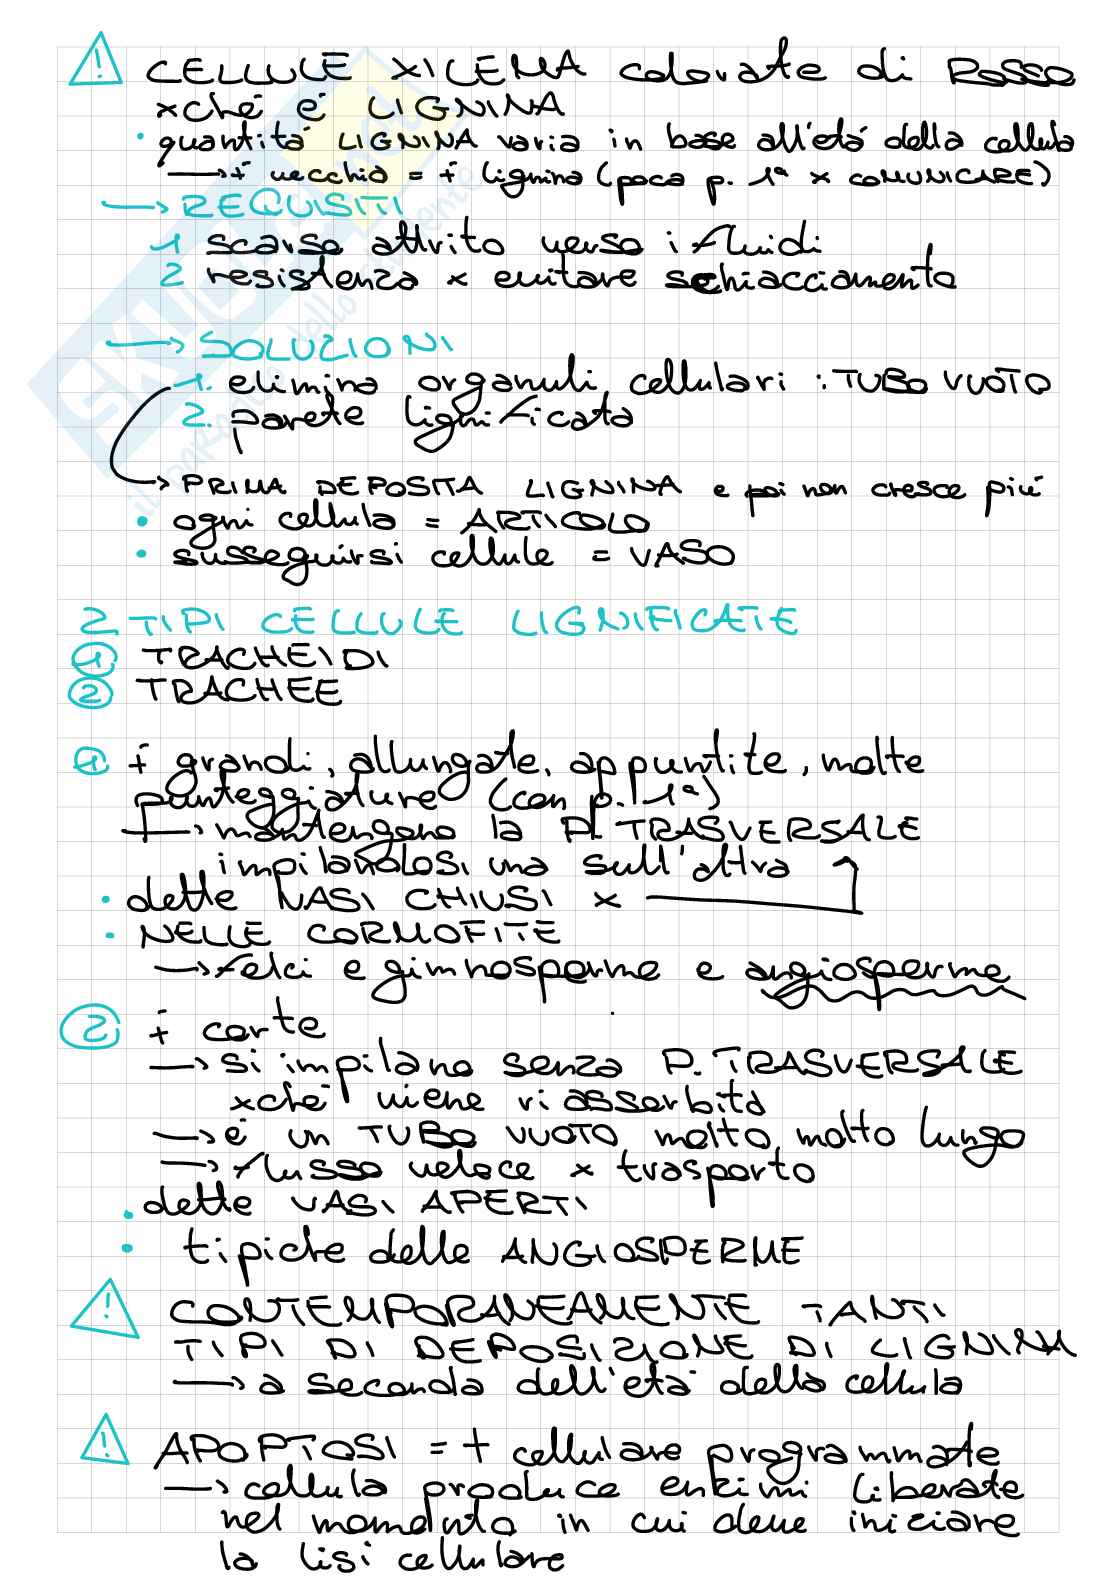 ! CELLULE XILEMA colorate di ROSSO
xché é LIGNINA
• quantità LIGNINA varia in base all'etá della cellula
→ + vecchia = + lignina (poca p. 1ª x COMUNICARE)
→ REQUISITI
1 scarso attrito verso i fluidi
2 resistenza x evitare schiacciamento
→ SOLUZIONI
1. elimina organuli cellulari : TUBO VUOTO
2. parete lignificata
→ PRIMA DEPOSITA LIGNINA e poi non cresce piú
• ogni cellula = ARTICOLO
• susseguirsi cellule = VASO
2 TIPI CELLULE LIGNIFICATE
1 TRACHEIDI
2 TRACHEE
1 + grandi, allungate, appuntite, molte
punteggiature (con p. 1ª)
→ mantengono la P. TRASVERSALE
impilandosi una sull'altra
• dette VASI CHIUSI x
• NELLE CORMOFITE
→ felci e gimnosperme e angiosperme
2 + corte
→ si impilano senza P. TRASVERSALE
xché viene riassorbita
→ é un TUBO VUOTO molto molto lungo
→ flusso veloce x trasporto
• dette VASI APERTI
• tipiche delle ANGIOSPERME
! CONTEMPORANEAMENTE TANTI
TIPI DI DEPOSIZIONE DI LIGNINA
→ a seconda dell'etá della cellula
! APOPTOSI = + cellulare programmate
→ cellula produce enzimi liberate
nel momento in cui deve iniziare
la lisi cellulare